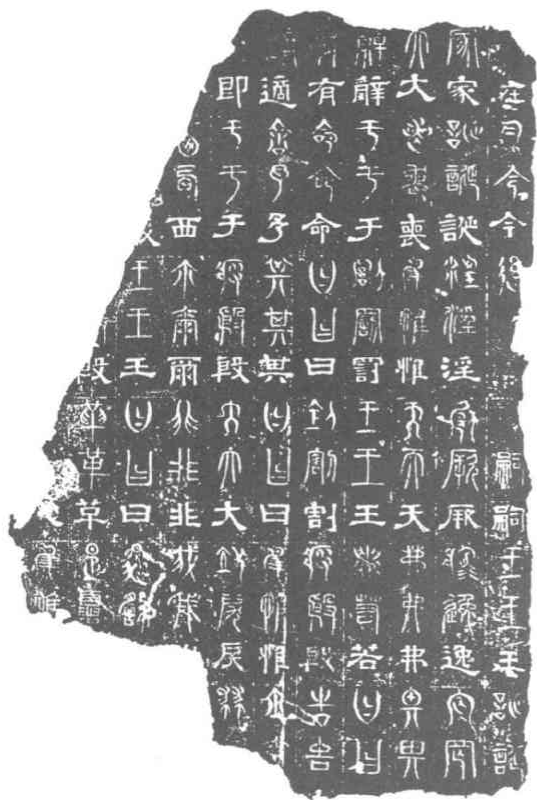 今今後嗣嗣王王王誕誕
家家誕誕誕淫淫淫厥厥厥逸逸逸罔罔
大大喪喪喪惟惟惟天天天弗弗弗畀畀
辭辭于于于罰罰罰王王王若若若曰曰
有有命命命曰曰曰割割割殷殷殷告告
適予予予其其其曰曰曰惟惟惟爾
即于于于殷殷殷大大大戾戾戾肆
西西西爾爾爾非非非我我
王王王曰曰曰繇繇
殷革革革夏夏